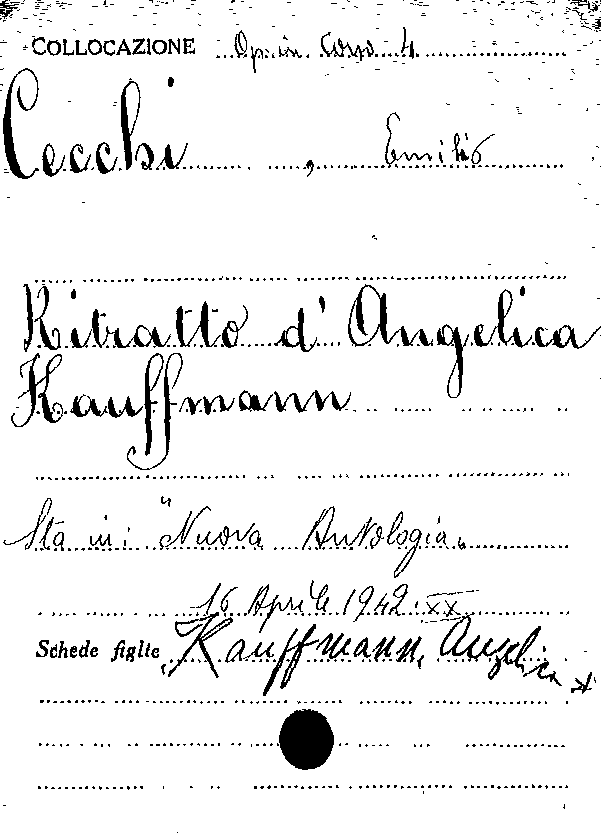 COLLOCAZIONE Op. in Corso 4
Cecchi , Emilio
Ritratto d' Angelica
Kauffmann
Sta in: "Nuova Antologia„
16 Aprile 1942. XX
Schede figlie Kauffmann, Angelica x